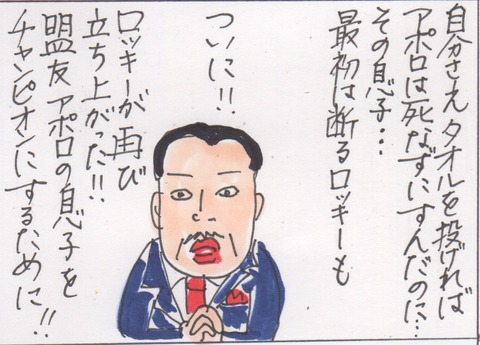 自分さえタオルを投げれば
アポロは死なずにすんだのに…
その息子…
最初は断るロッキーも
ついに!!
ロッキーが再び
立ち上がった!!
盟友アポロの息子を
チャンピオンにするために!!